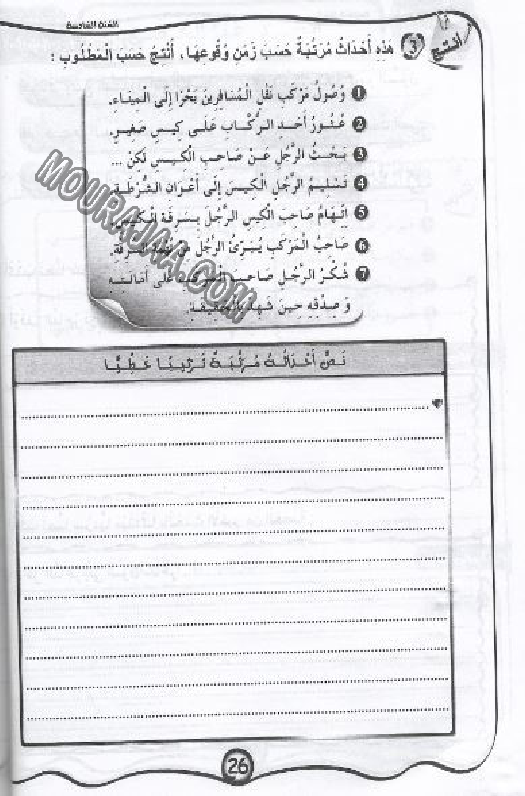 السنة السادسة
أنتج
3 هَذِهِ أَحْدَاثٌ مُرَتَّبَةٌ حَسَبَ زَمَنِ وُقُوعِهَا، أُنْتِجُ حَسَبَ الْمَطْلُوبِ :
1 وُصُولُ مَرْكَبِ نَقْلِ الْمُسَافِرِينَ بَحْرًا إِلَى الْمِينَاءِ.
2 عُثُورُ أَحَدِ الرُّكَّابِ عَلَى كِيسٍ صَغِيرٍ.
3 بَحْثُ الرَّجُلِ عَنْ صَاحِبِ الْكِيسِ لَكِنْ ...
4 تَسْلِيمُ الرَّجُلِ الْكِيسَ إِلَى أَعْوَانِ الشُّرْطَةِ.
5 اِتِّهَامُ صَاحِبِ الْكِيسِ الرَّجُلَ بِسَرِقَةِ الْكِيسِ.
6 صَاحِبُ الْمَرْكَبِ يُبَرِّئُ الرَّجُلَ مِنْ السَّرِقَةِ.
7 شُكْرُ الرَّجُلِ صَاحِبَ عَلَى أَمَانَتِهِ
وَ صِدْقِهِ حِينَ شَهِدَ بِالْحَقِيقَةِ.
MOURAJAA.COM
نَصٌّ أَحْدَاثُهُ مُرَتَّبَةٌ تَرْتِيبًا خَطِّيًّا
26